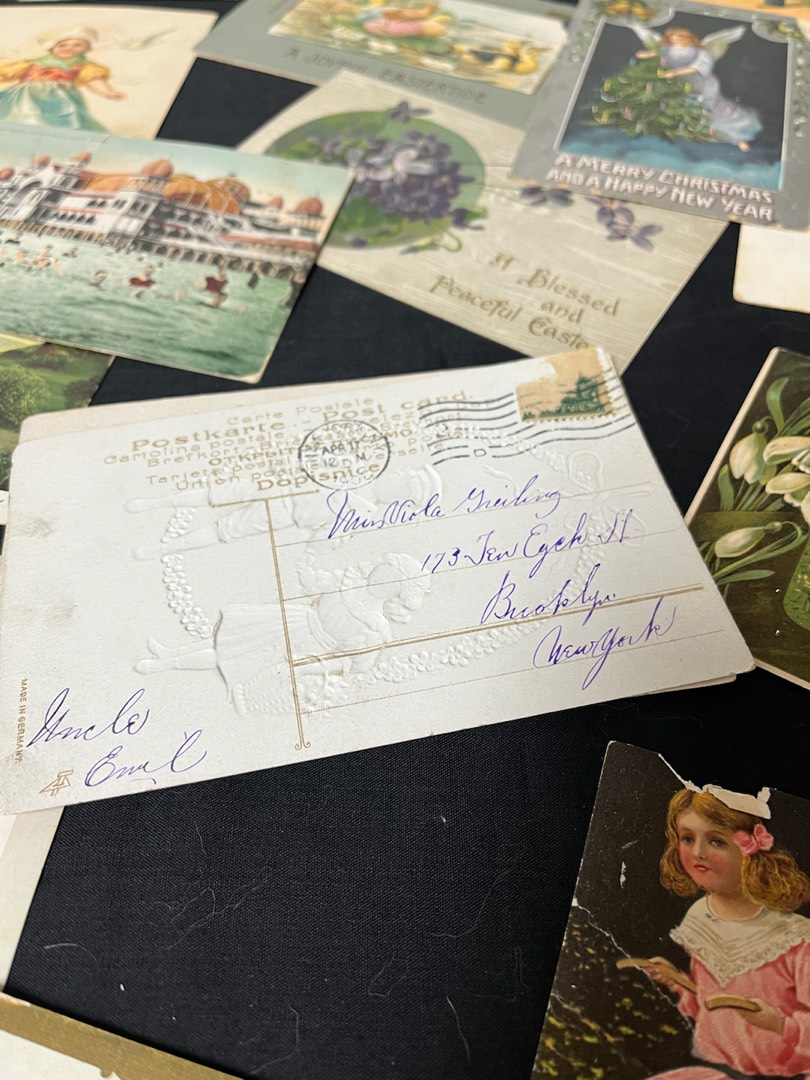 A JOYFUL EASTERTIDE
A MERRY CHRISTMAS
AND A HAPPY NEW YEAR
A Blessed
and
Peaceful Easter
Carte Postale
Postkarte - Post card.
Cartolina postale
Brefkort
Union Postale
Dopisnice
APR 11
12 M
Miss Viola Greiling
173 Ten Eyck St
Brooklyn
New York
MADE IN GERMANY.
Uncle
Emil